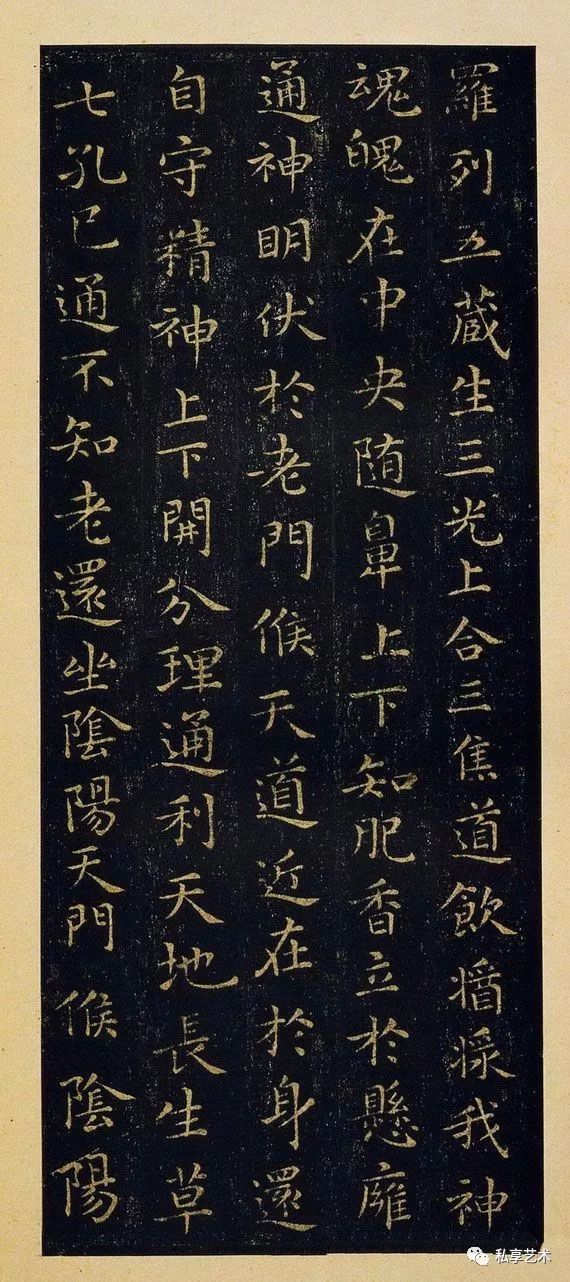 羅列五藏生三光上合三焦道飲醬漿我神
魂魄在中央随鼻上下知肥香立於懸廱
通神明伏於老門候天道近在於身還
自守精神上下開分理通利天地長生草
七孔已通不知老還坐陰陽天門候陰陽
私享艺术